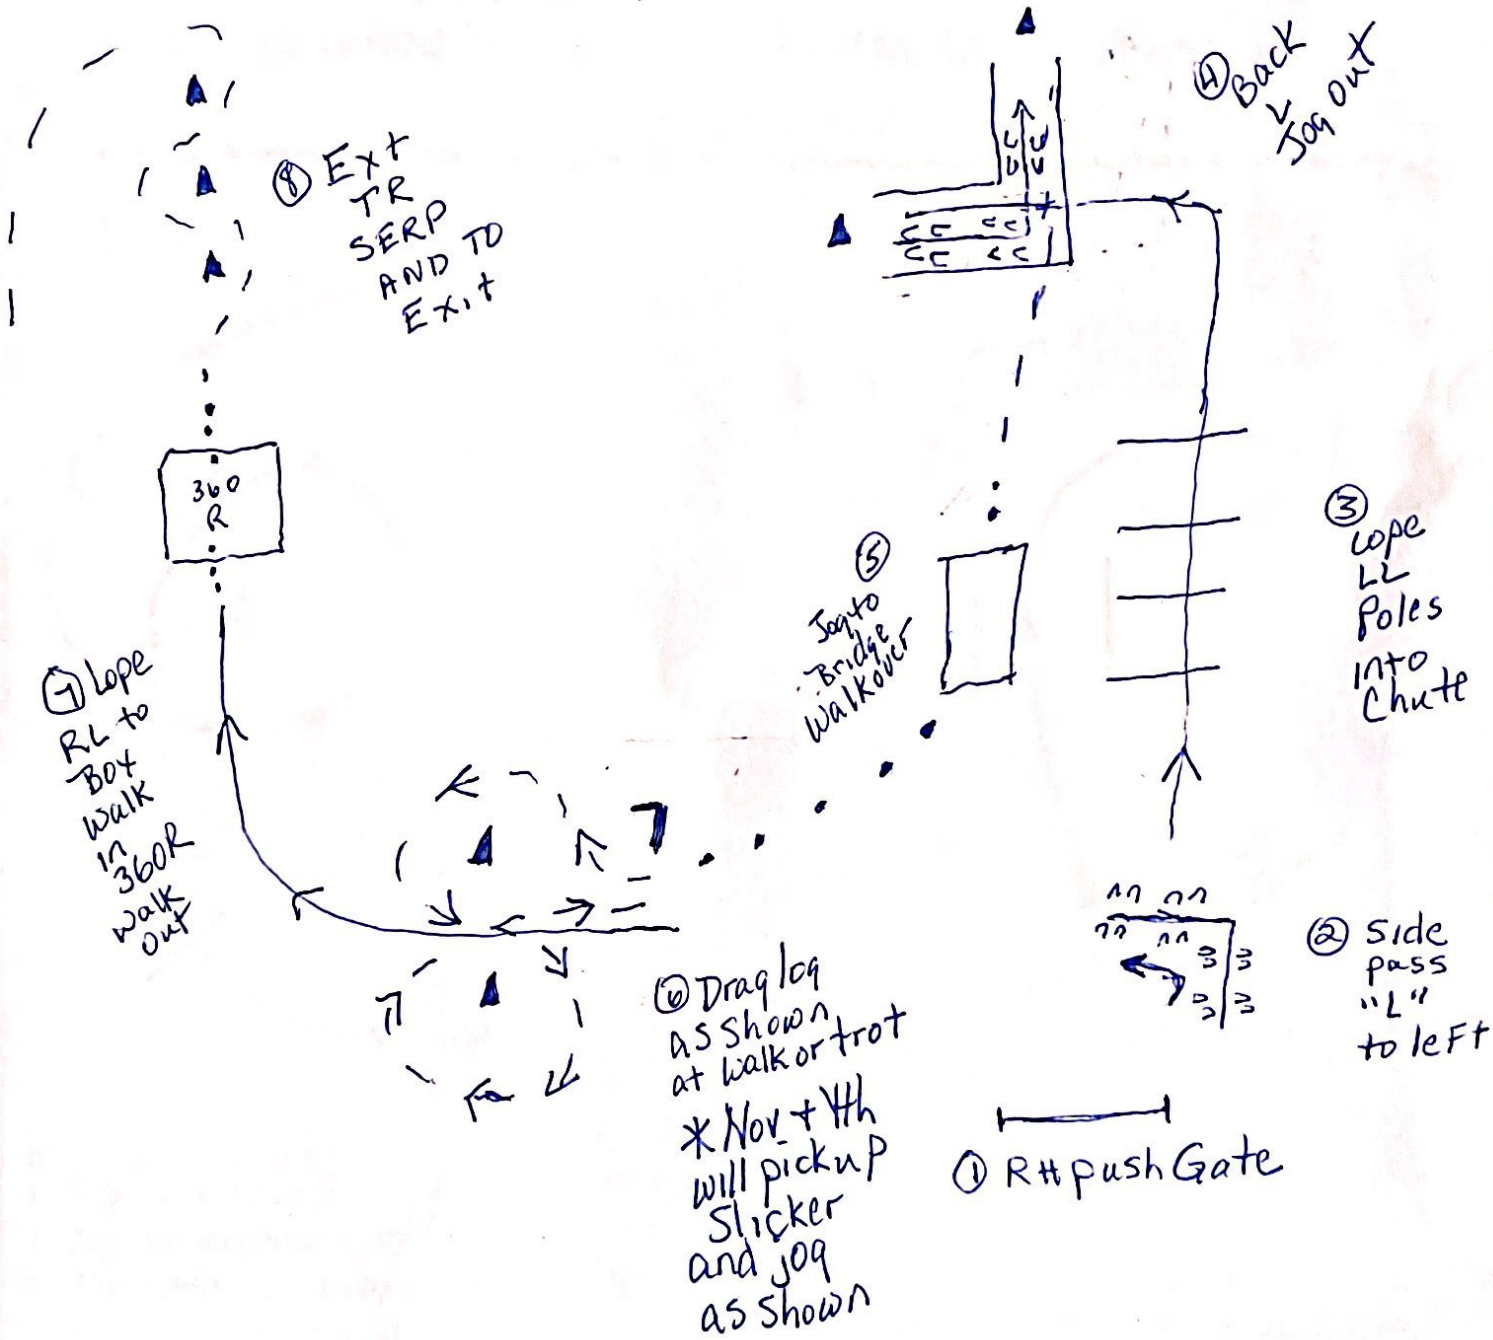 ① RH push Gate
② Side
pass
"L"
to left
③
Lope
LL
Poles
into
Chute
④ Back
↓
Jog Out
⑤
Jog to
Bridge
Walkover
⑥ Drag log
as shown
at walk or trot
* Nov + Yth
will pickup
Slicker
and jog
as shown
⑦ Lope
RL to
Box
walk
in
360R
walk
out
360
R
⑧ Ext
TR
SERP
AND TO
Exit